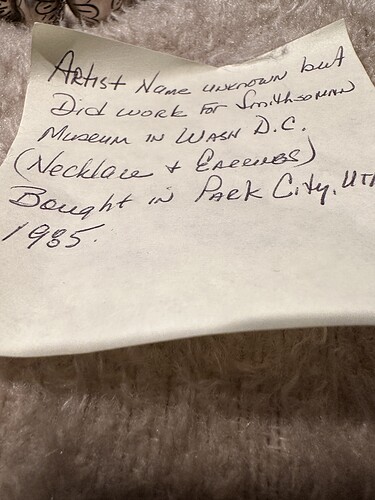 Artist Name unknown but
Did work for Smithsonian
Museum in Wash D.C.
(Necklace + Earrings)
Bought in Park City, UTA
1985.